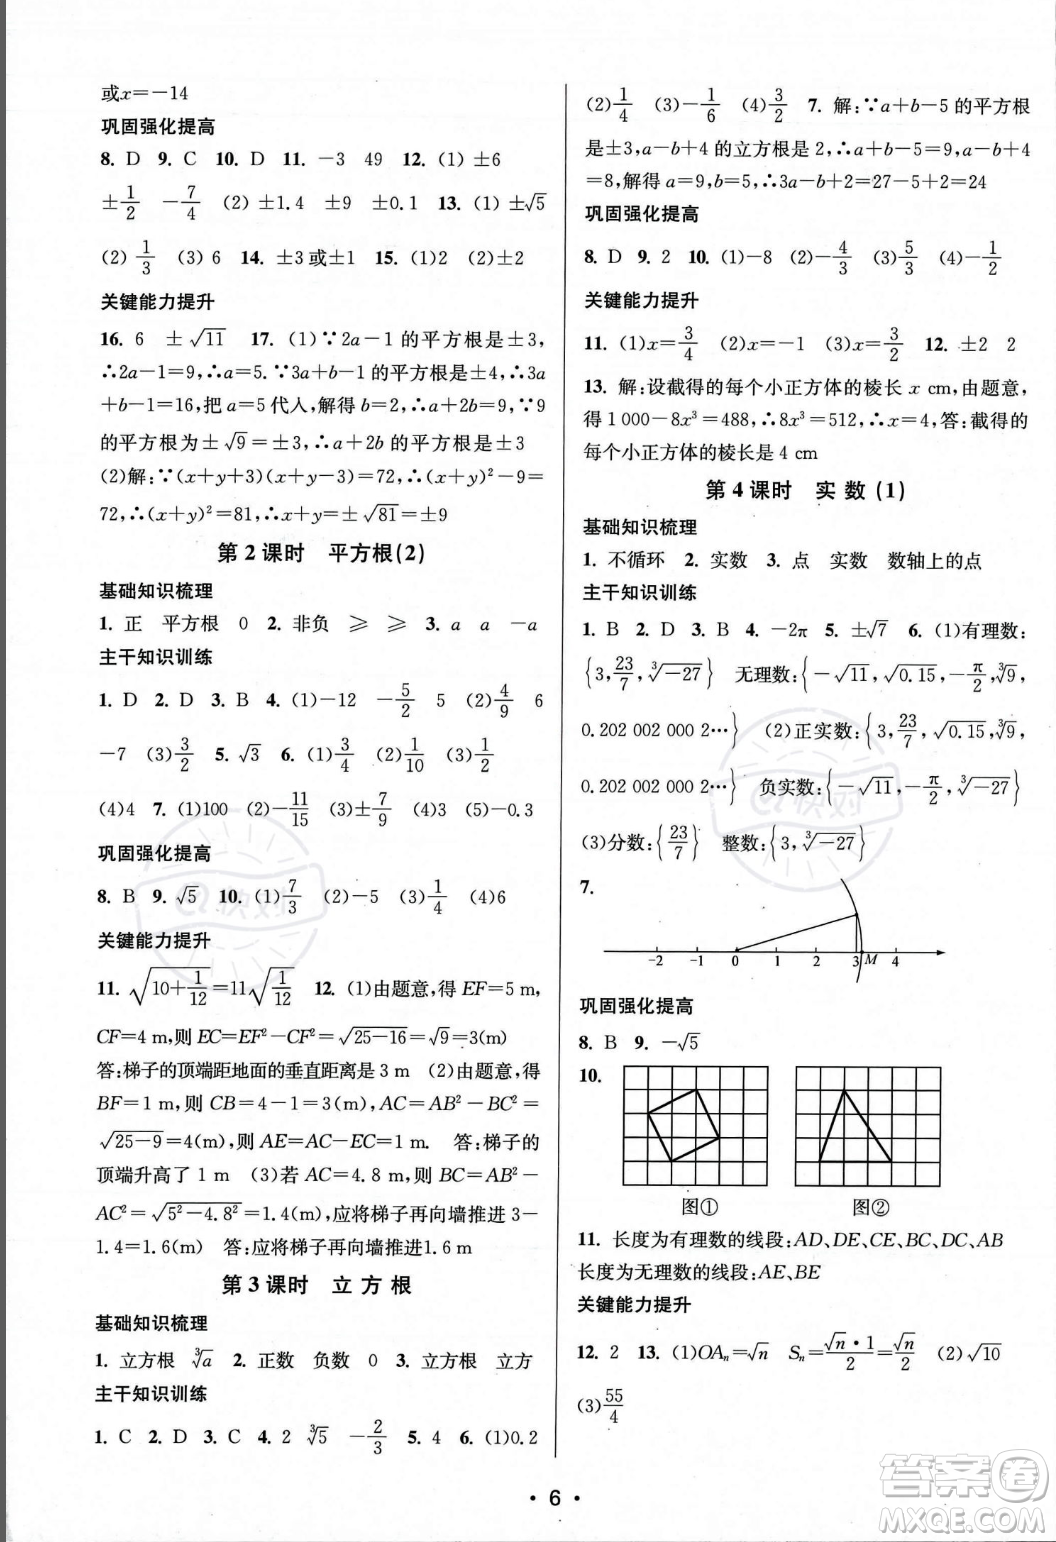 或x=-14
巩固强化提高
8. D 9. C 10. D 11. -3 49 12. (1) ±6
±1/2 -7/4 (2) ±1.4 ±9 ±0.1 13. (1) ±√5
(2) 1/3 (3) 6 14. ±3或±1 15. (1)2 (2)±2
关键能力提升
16. 6 ±√11 17. (1)∵2a-1的平方根是±3,
∴2a-1=9,∴a=5.∵3a+b-1的平方根是±4,∴3a
+b-1=16,把a=5代人,解得b=2,∴a+2b=9,∵9
的平方根为±√9=±3,∴a+2b的平方根是±3
(2)解:∵(x+y+3)(x+y-3)=72,∴(x+y)²-9=
72,∴(x+y)²=81,∴x+y=±√81=±9
第2课时 平方根(2)
基础知识梳理
1. 正 平方根 0 2. 非负 ⩾ ⩾ 3. a a -a
主干知识训练
1. D 2. D 3. B 4. (1)-12 -5/2 5 (2)4/9 6
-7 (3)3/2 5. √3 6. (1)3/4 (2)10 (3)1/2
(4)4 7. (1)100 (2)-11/15 (3)±7/9 (4)9 (5)-0.3
巩固强化提高
8. B 9. √5 10. (1)7/3 (2)-5 (3)1/4 (4)6
关键能力提升
11. √(10+1/12)=11√(1/12) 12. (1)由题意,得EF=5 m,
CF=4 m,则EC=EF²-CF²=√(25-16)=√9=3(m)
答:梯子的顶端距地面的垂直距离是3 m (2)由题意,得
BF=1 m,则CB=4-1=3(m),AC=AB²-BC²=
√(25-9)=4(m),则AE=AC-EC=1 m. 答:梯子的
顶端升高了1 m (3)若AC=4.8 m,则BC=AB²-
AC²=√(5²-4.8²)=1.4(m),应将梯子再向墙推进3-
1.4=1.6(m) 答:应将梯子再向墙推进1.6 m
第3课时 立方根
基础知识梳理
1. 立方根 ∛a 2. 正数 负数 0 3. 立方根 立方
主干知识训练
1. C 2. D 3. C 4. 2 ∛5 -2/3 5. 4 6. (1)0.2
(2)1/4 (3)-1/6 (4)3/2 7. 解:∵a+b-5的平方根
是±3,a-b+4的立方根是2,∴a+b-5=9,a-b+4
=8,解得a=9,b=5,∴3a-b+2=27-5+2=24
巩固强化提高
8. D 9. 2 10. (1)-8 (2)-4/3 (3)5/3 (4)-1/2
关键能力提升
11. (1)x=3/4 (2)x=-1 (3)x=3/2 12. ±2 2
13. 解:设截得的每个小正方体的棱长x cm,由题意,
得1 000-8x³=488,∴8x³=512,∴x=4,答:截得的
每个小正方体的棱长是4 cm
第4课时 实数(1)
基础知识梳理
1. 不循环 2. 实数 3. 点 实数 数轴上的点
主干知识训练
1. B 2. D 3. B 4. -2π 5. ±√7 6. (1)有理数:
{3,23/7,∛-27} 无理数:{-√11,√0.15,-π/2,∛9,
0.202 002 000 2…} (2)正实数:{3,23/7,√0.15,∛9,
0.202 002 000 2…} 负实数:{-√11,-π/2,∛-27}
(3)分数:{23/7} 整数:{3,∛-27}
7.
-2 -1 0 1 2 3 M 4
巩固强化提高
8. B 9. -√5
10.
图① 图②
11. 长度为有理数的线段:AD,DE,CE,BC,DC,AB
长度为无理数的线段:AE,BE
关键能力提升
12. 2 13. (1)OAₙ=√n Sₙ=√n·1/2=√n/2 (2)√10
(3)55/4
· 6 ·
答案圈
MXQE.COM